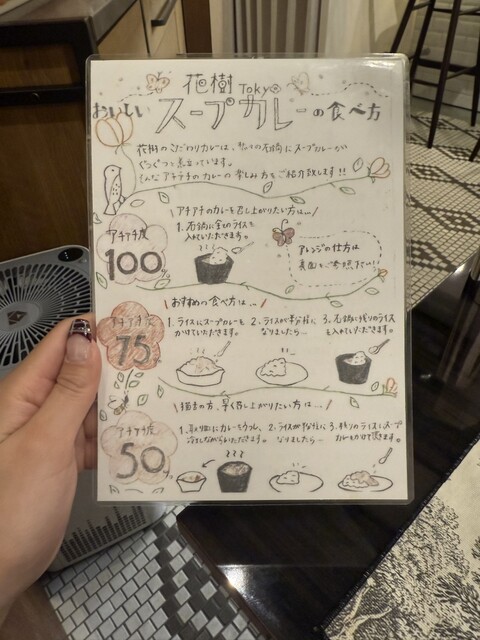 花樹 Tokyo
おいしい
スープカレーの食べ方
花樹のこだわりカレーは、熱々の石鍋にスープカレーが
ぐつぐつと煮立っています。
そんなアチアチのカレーの楽しみ方をご紹介致します!!
アチアチ度
100%
アチアチのカレーを召し上がりたい方は…
1. 石鍋に全のライスを
入れていただきます。
アレンジの仕方は
裏面をご参照下さい!
アチアチ度
75%
おすすめの食べ方は…
1. ライスにスープカレーを
かけていただきます。
2. ライスが半分程に
なりましたら…
3. 石鍋に残りのライス
を入れていただきます。
アチアチ度
50%
猫舌の方、早く召し上がりたい方は…
1. 取り皿にカレーをうつし、
冷ましながらいただきます。
2. ライスが半分程に
なりましたら…
3. 残りのライスにスープ
カレーをかけて頂きます。